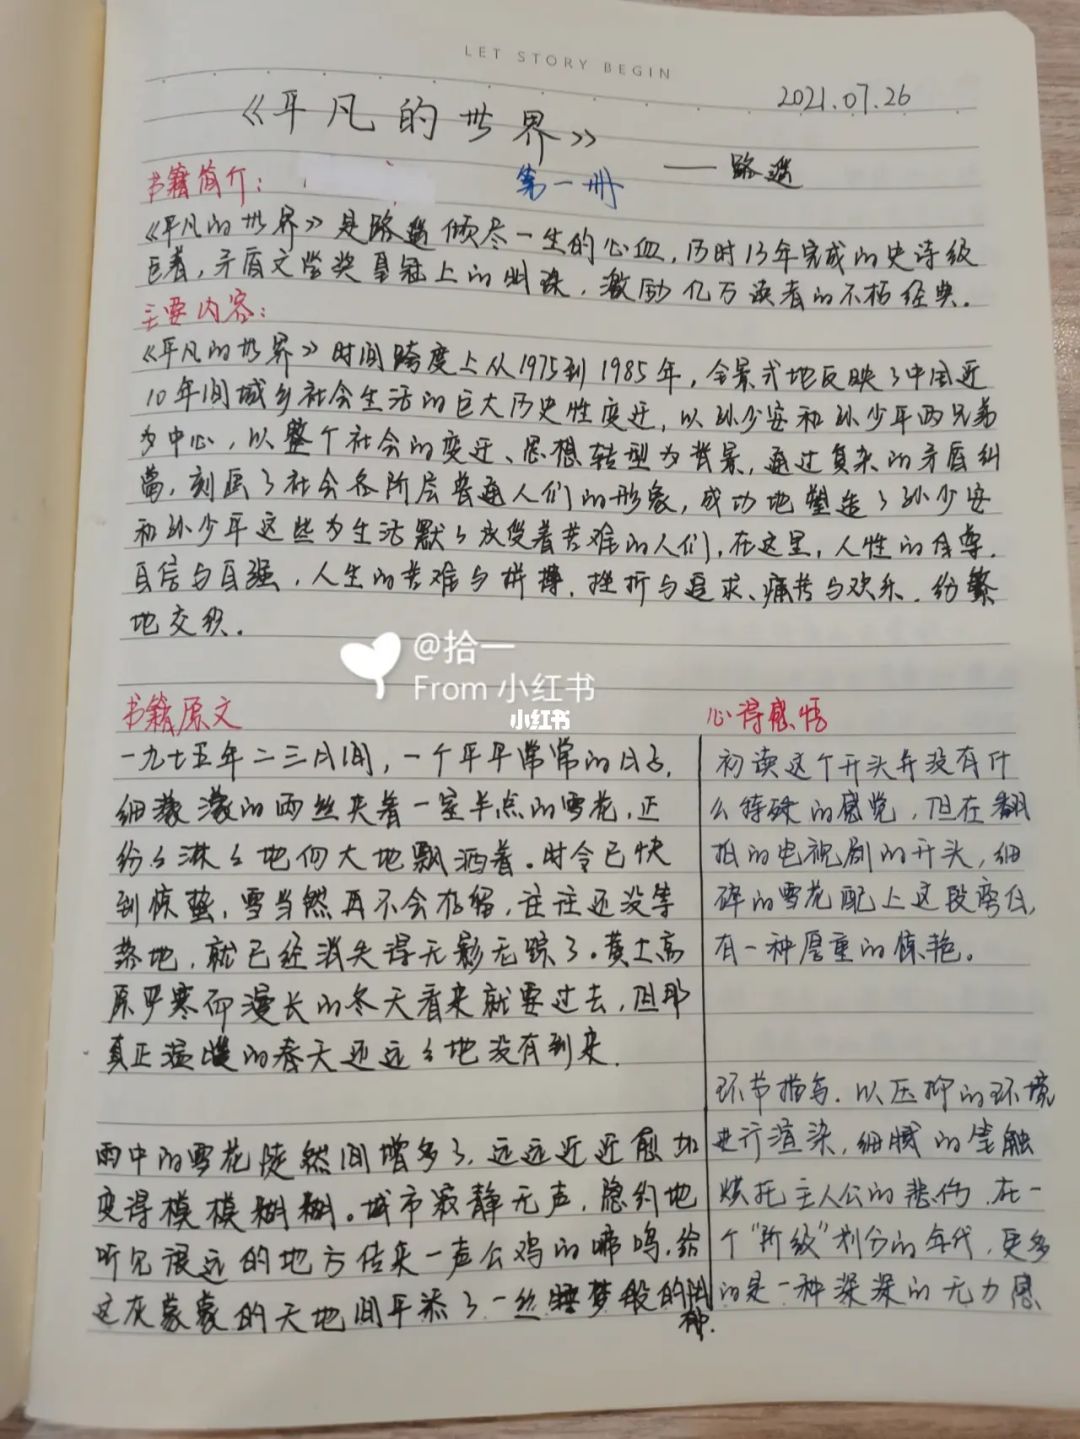 LET STORY BEGIN
2021.07.26
《平凡的世界》
——路遥
书籍简介：
第一册
《平凡的世界》是路遥倾尽一生的心血，历时13年完成的史诗级
巨着，矛盾文学奖皇冠上的明珠，激励亿万读者的不朽经典。
主要内容：
《平凡的世界》时间跨度上从1975到1985年，全景式地反映了中国近
10年间城乡社会生活的巨大历史性变迁，以孙少安和孙少平两兄弟
为中心，以整个社会的变迁、思想转型为背景，通过复杂的矛盾纠
葛，刻画了社会各阶层普通人们的形象，成功地塑造了孙少安
和孙少平这些为生活默々承受着苦难的人们，在这里，人性的自尊、
自信与自强，人生的苦难与拼搏，挫折与追求、痛苦与欢乐，纷繁
地交织。
@拾一
From 小红书
小红书
书籍原文
一九七五年二三月间，一个平平常常的日子，
细濛濛的雨丝夹着一星半点的雪花，正
纷々淋々地向大地飘洒着。时令已快
到惊蛰，雪当然再不会存留，往往还没等
落地，就已经消失得无影无踪了。黄土高
原严寒而漫长的冬天看来就要过去，但那
真正温暖的春天还远々地没有到来。
雨中的雪花陡然间增多了，远远近近愈加
变得模模糊糊。城市寂静无声，隐约地
听见很远的地方传来一声公鸡的啼鸣，给
这灰蒙蒙的天地间平添了一丝睡梦般的阴
郁.
心得感悟
初读这个开头并没有什
么特殊的感觉，但在翻
拍的电视剧的开头，细
碎的雪花配上这段旁白，
有一种厚重的惊艳。
环节描写，以压抑的环境
进行渲染，细腻的笔触
烘托主人公的悲伤，在一
个“阶级”划分的年代，更多
的是一种深深的无力感